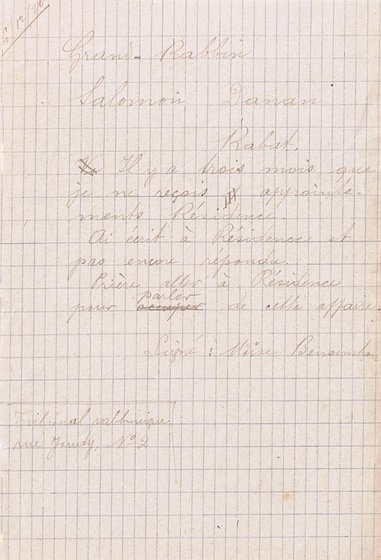 Grand-Rabbin
Salomon Danan
Rabat.
Il y a trois mois que
je ne reçois appointe-
ments Résidence.
Ai écrit à Résidence et
pas encore répondu.
Prière aller à Résidence
pour occuper parler de cette affaire
Signé : Moïse Bensimhon
Tribunal rabbinique
rue Jeudy, No 2